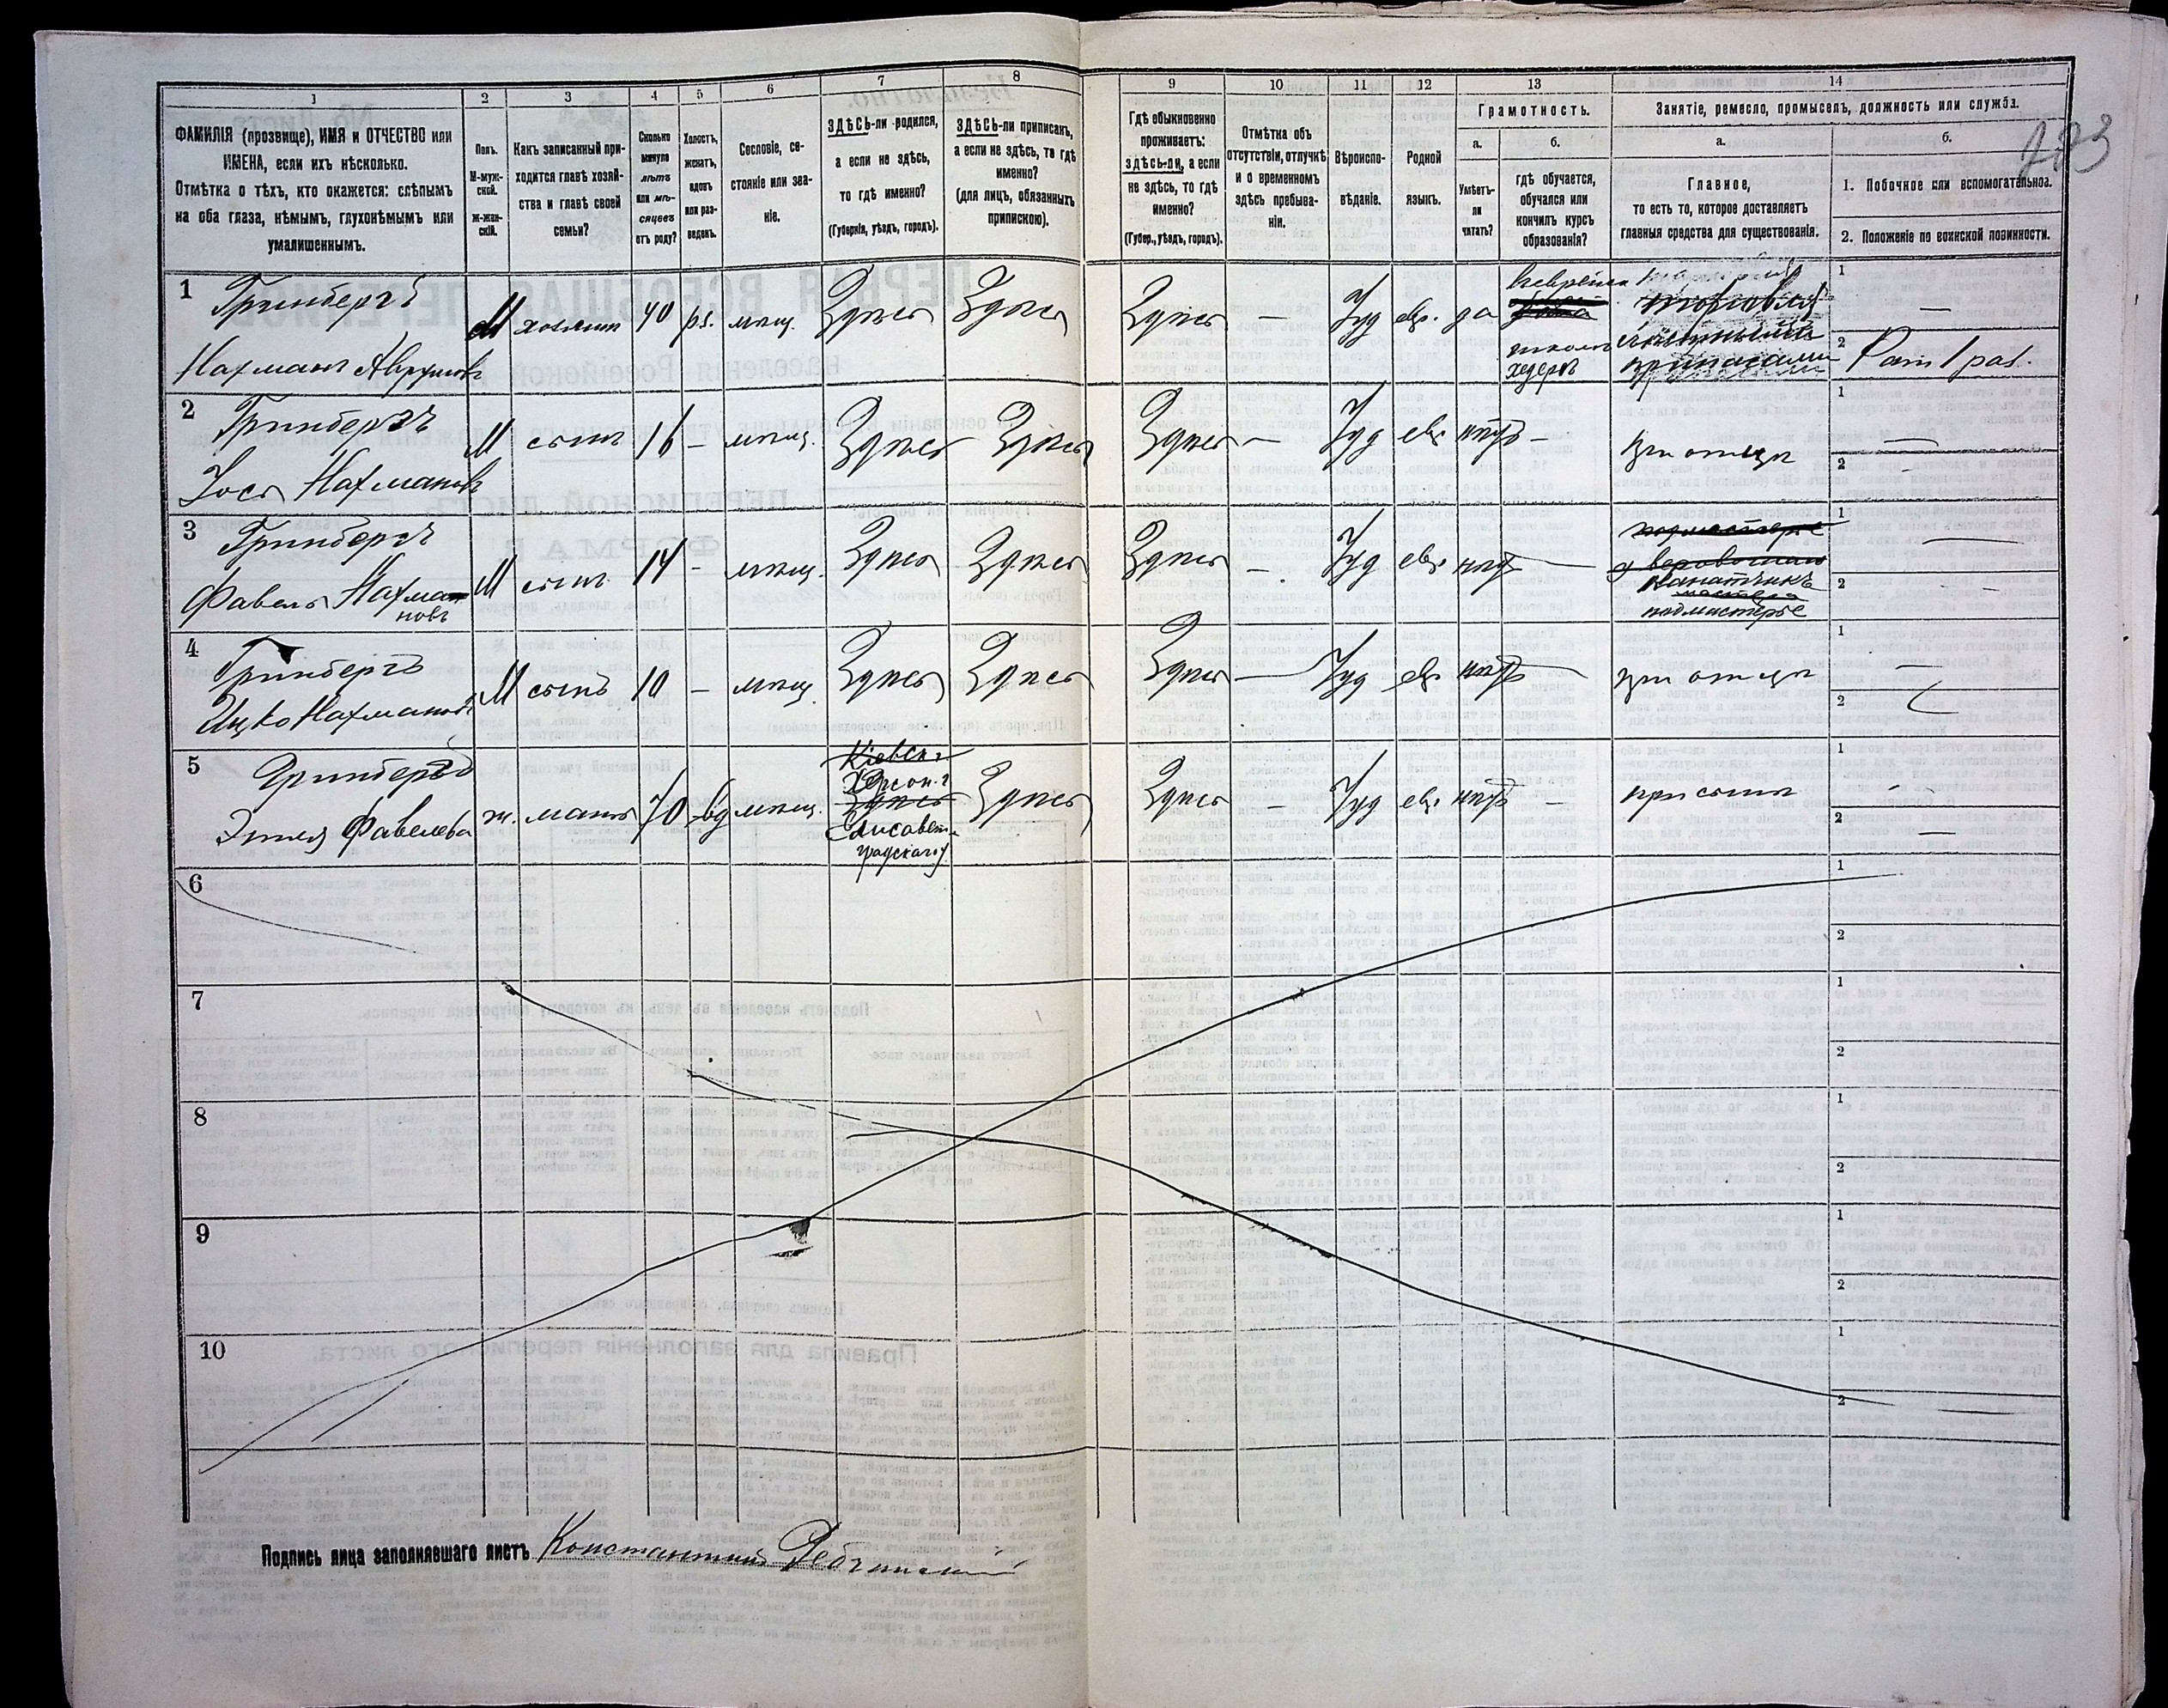 1 2 3 4 5 6 7 8 9 10 11 12 13 14
ФАМИЛІЯ (прозвище), ИМЯ и ОТЧЕСТВО или
ИМЕНА, если ихъ нѣсколько.
Отмѣтка о тѣхъ, кто окажется: слѣпымъ
на оба глаза, нѣмымъ, глухонѣмымъ или
умалишеннымъ.
Полъ.
М-муж-
ской.
Ж-жен-
скій.
Какъ записанный при-
ходится главѣ хозяй-
ства и главѣ своей
семьи?
Сколько
минуло
лѣтъ
или мѣ-
сяцевъ
отъ роду?
Холостъ,
женатъ,
вдовъ
или раз-
веденъ.
Сословіе, со-
стояніе или зва-
ніе.
ЗДѢСЬ-ли родился,
а если не здѣсь,
то гдѣ именно?
(Губернія, уѣздъ, городъ).
ЗДѢСЬ-ли приписанъ,
а если не здѣсь, то гдѣ
именно?
(для лицъ, обязанныхъ
припискою).
Гдѣ обыкновенно
проживаетъ:
здѣсь-ли, а если
не здѣсь, то гдѣ
именно?
(Губер., уѣздъ, городъ).
Отмѣтка объ
отсутствіи, отлучкѣ
и о временномъ
здѣсь пребыва-
ніи.
Вѣроиспо-
вѣданіе.
Родной
языкъ.
Грамотность.
а.
Умѣетъ-
ли
читать?
б.
гдѣ обучается,
обучался или
кончилъ курсъ
образованія?
Занятіе, ремесло, промыселъ, должность или служба.
а.
Главное,
то есть то, которое доставляетъ
главныя средства для существованія.
б.
1. Побочное или вспомогательное.
2. Положеніе по воинской повинности.
1 Гринбергъ
Нахманъ Аврумовъ
М хозяинъ 40 рз. мѣщ. Здѣсь Здѣсь Здѣсь — Іуд евр. да
хедеръ
торговля
припасами
1 —
2
2 Гринбергъ
Іось Нахмановъ
М сынъ 16 – мѣщ. Здѣсь Здѣсь Здѣсь — Іуд евр нѣтъ –
при отцѣ
1 —
2 -
3 Гринбергъ
Фавель Нахма
новъ
М сынъ 14 - мѣщ. Здѣсь Здѣсь Здѣсь — Іуд евр нѣтъ —
подмастерье
канатчикъ
подмастерье
1 —
2 -
4 Гринбергъ
Ицко Нахмановъ
М сынъ 10 – мѣщ. Здѣсь Здѣсь Здѣсь — Іуд евр нѣтъ —
при отцѣ
1 —
2
5 Гринбергъ
Этля Фавелева
ж. мать 70 вд мѣщ.
Кіевск.
Херсон. г
Здѣсь
Елисавет-
градскаго у
Здѣсь Здѣсь – Іуд евр нѣтъ –
при сынѣ
1 -
2 —
6 1 2
7 1 2
8 1 2
9 1 2
10 1 2
Подпись лица заполнявшаго листъ Константинъ